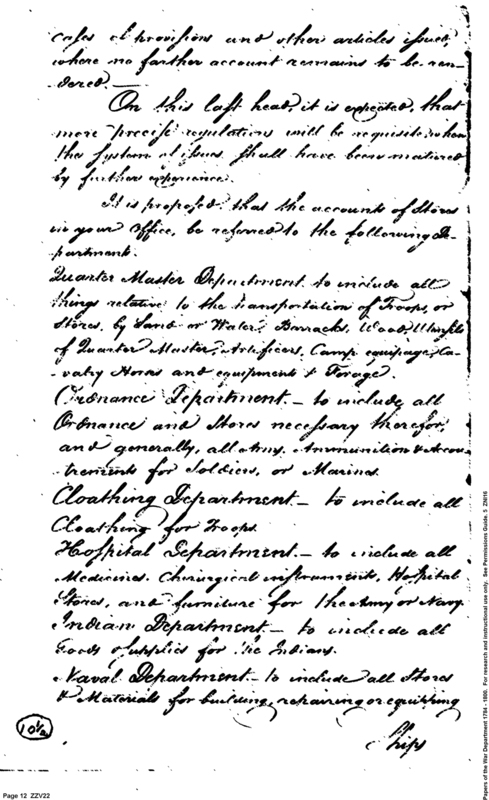 cases of provisions and other articles issued,
where no farther account remains to be ren-
dered.—
On this last head, it is expected, that
more precise regulations will be requisite, when
the system of issues shall have been matured
by further experience.
It is proposed that the accounts of Stores
in your Office, be referred to the following De-
partments.
Quarter Master Department to include all
things relative to the transportation of Troops, or
Stores, by Land or Water, Barracks, Wood, Utensils
of Quarter Master, Artificers, Camp equipage, Ca-
valry Horses and equipments & Forage.
Ordnance Department.— to include all
Ordnance and Stores necessary therefor,
and generally, all Arms, Ammunition & Accou-
trements for Soldiers, or Marines.
Cloathing Department.— to include all
Cloathing for Troops.
Hospital Department.— to include all
Medicines, Chirurgical instruments, Hospital
Stores, and furniture for the Army or Navy.
Indian Department— to include all
Goods & supplies for the Indians.
Naval Department— to include all Stores
& Materials for building, repairing or equipping
Ships
10½
Page 12 ZZV22
Papers of the War Department 1784 - 1800. For research and instructional use only. See Permissions Guide. 5 ZNI16